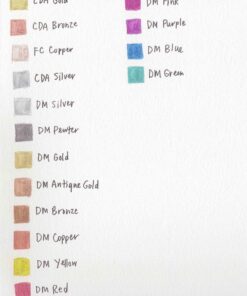 CDA Gold
CDA Bronze
FC Copper
CDA Silver
DM Silver
DM Pewter
DM Gold
DM Antique Gold
DM Bronze
DM Copper
DM Yellow
DM Red
DM Pink
DM Purple
DM Blue
DM Green